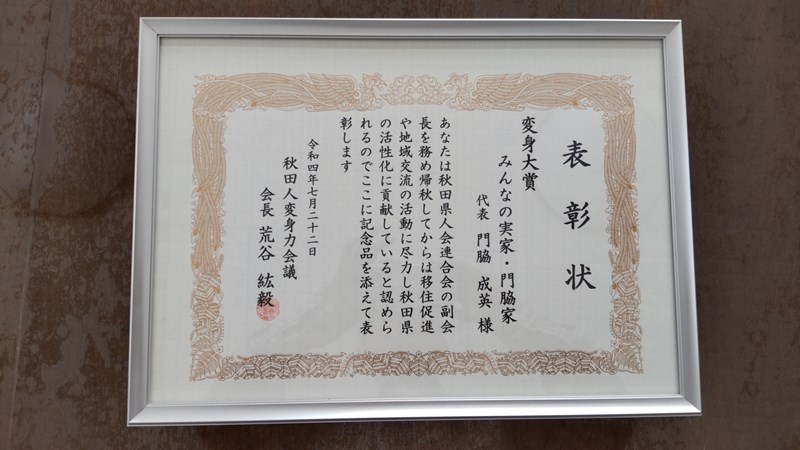 表彰状
変身大賞
みんなの実家・門脇家
代表 門脇 成英 様
あなたは秋田県人会連合会の副会
長を務め帰秋してからは移住促進
や地域交流の活動に尽力し秋田県
の活性化に貢献していると認めら
れるのでここに記念品を添えて表
彰します
令和四年七月二十二日
秋田人変身力会議
会長 荒谷 紘毅